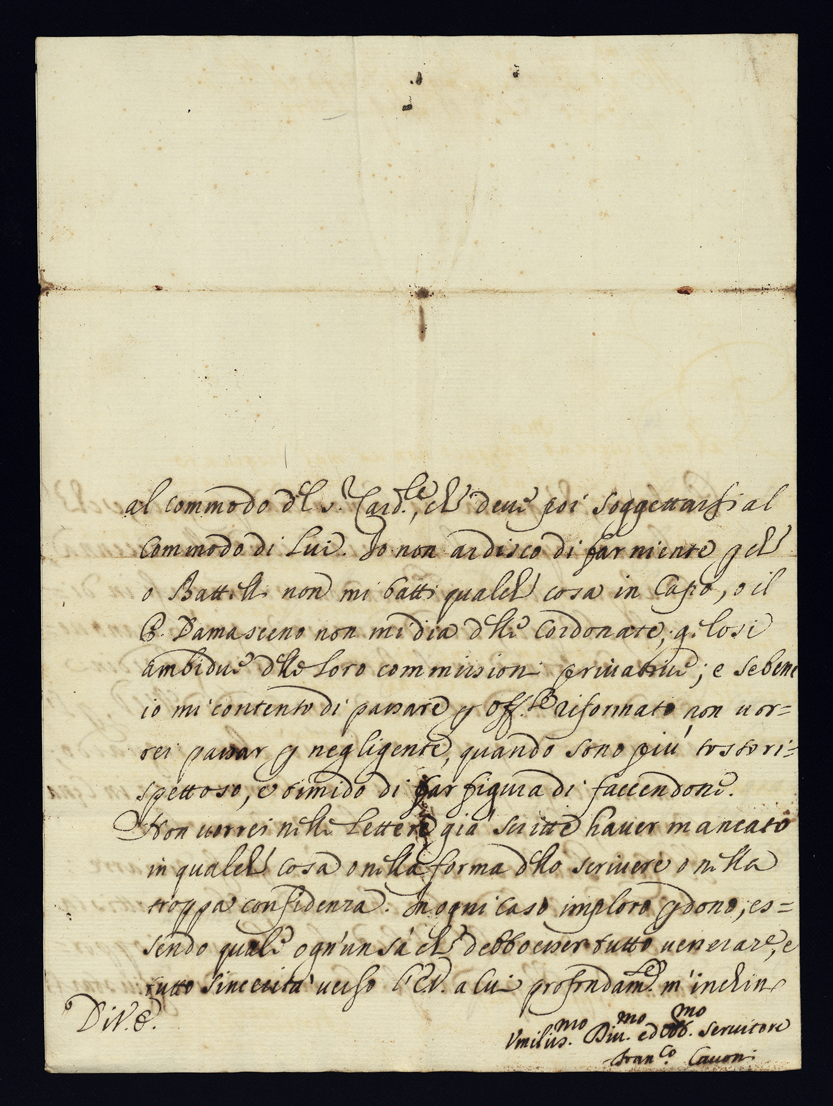 al commodo d'l S.r Card.le, ch' deve poi soggettarsi al
Commodo di Lui. Io non ardisco di far niente p ch'
o Battelli non mi batti qualch' cosa in Capo, o il
P. Damasceno non mi dia d'lle Cordonate, gelosi
ambidue d'lle loro commissioni privative; e sebene
io mi contento di passare p Off.le riformato non vor=
rei passar p negligente, quando sono più tosto ri=
spettoso, e timido di far figura di faccendone.
Non vorrei nelle Lettere già scritte haver mancato
in qualch' cosa o nella forma d'llo scrivere o nella
troppa confidenza. In ogni caso imploro pdono, es=
sendo quale ogn'un sà ch' debbo esser tutto venerare, e
tutto sincerità verso V.E. a cui profondam.te m'inchino
Di V.E.
Umiliss.mo Div.mo ed Obb.mo Servitore
Fran.co Cavoni